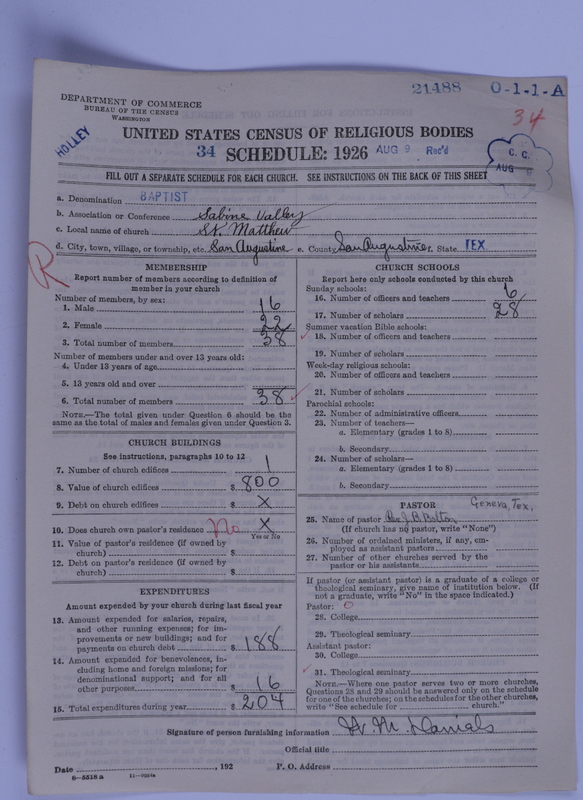 21488 O-1-1-A
DEPARTMENT OF COMMERCE
BUREAU OF THE CENSUS
WASHINGTON
34
HOLLEY
UNITED STATES CENSUS OF RELIGIOUS BODIES
34 SCHEDULE: 1926 AUG 9 Rec'd
C. C.
AUG
FILL OUT A SEPARATE SCHEDULE FOR EACH CHURCH. SEE INSTRUCTIONS ON THE BACK OF THIS SHEET
a. Denomination BAPTIST
b. Association or Conference Sabine Valley
c. Local name of church St. Matthew
d. City, town, village, or township, etc. San Augustine e. County San Augustine f. State TEX.
R
MEMBERSHIP
Report number of members according to definition of member in your church
Number of members, by sex:
1. Male 16
2. Female 22
3. Total number of members 38
Number of members under and over 13 years old:
4. Under 13 years of age
5. 13 years old and over
6. Total number of members 38
NOTE.—The total given under Question 6 should be the
same as the total of males and females given under Question 3.
CHURCH BUILDINGS
See instructions, paragraphs 10 to 12
7. Number of church edifices 1
8. Value of church edifices $ 800
9. Debt on church edifices $ X
10. Does church own pastor's residence No X
Yes or No
11. Value of pastor's residence (if owned by
church) $
12. Debt on pastor's residence (if owned by
church) $
EXPENDITURES
Amount expended by your church during last fiscal year
13. Amount expended for salaries, repairs,
and other running expenses; for im-
provements or new buildings; and for
payments on church debt $ 188
14. Amount expended for benevolences, in-
cluding home and foreign missions; for
denominational support; and for all
other purposes $ 16
15. Total expenditures during year $ 204
CHURCH SCHOOLS
Report here only schools conducted by this church
Sunday schools:
16. Number of officers and teachers 6
17. Number of scholars 28
Summer vacation Bible schools:
18. Number of officers and teachers
19. Number of scholars
Week-day religious schools:
20. Number of officers and teachers
21. Number of scholars
Parochial schools:
22. Number of administrative officers
23. Number of teachers—
a. Elementary (grades 1 to 8)
b. Secondary
24. Number of scholars—
a. Elementary (grades 1 to 8)
b. Secondary
PASTOR Geneva, Tex,
25. Name of pastor Rev. J. B. Bolton
(If church has no pastor, write "None")
26. Number of ordained ministers, if any, em-
ployed as assistant pastors
27. Number of other churches served by the
pastor or his assistants
If pastor (or assistant pastor) is a graduate of a college or
theological seminary, give name of institution below. (If
not a graduate, write "No" in the space indicated.)
Pastor: O
28. College
29. Theological seminary
Assistant pastor:
30. College
31. Theological seminary
NOTE.—Where one pastor serves two or more churches,
Questions 28 and 29 should be answered only on the schedule
for one of the churches; on the schedules for the other churches,
write "See schedule for church."
Signature of person furnishing information W. M. Daniels
Official title
Date , 192 P. O. Address
8-5518 a